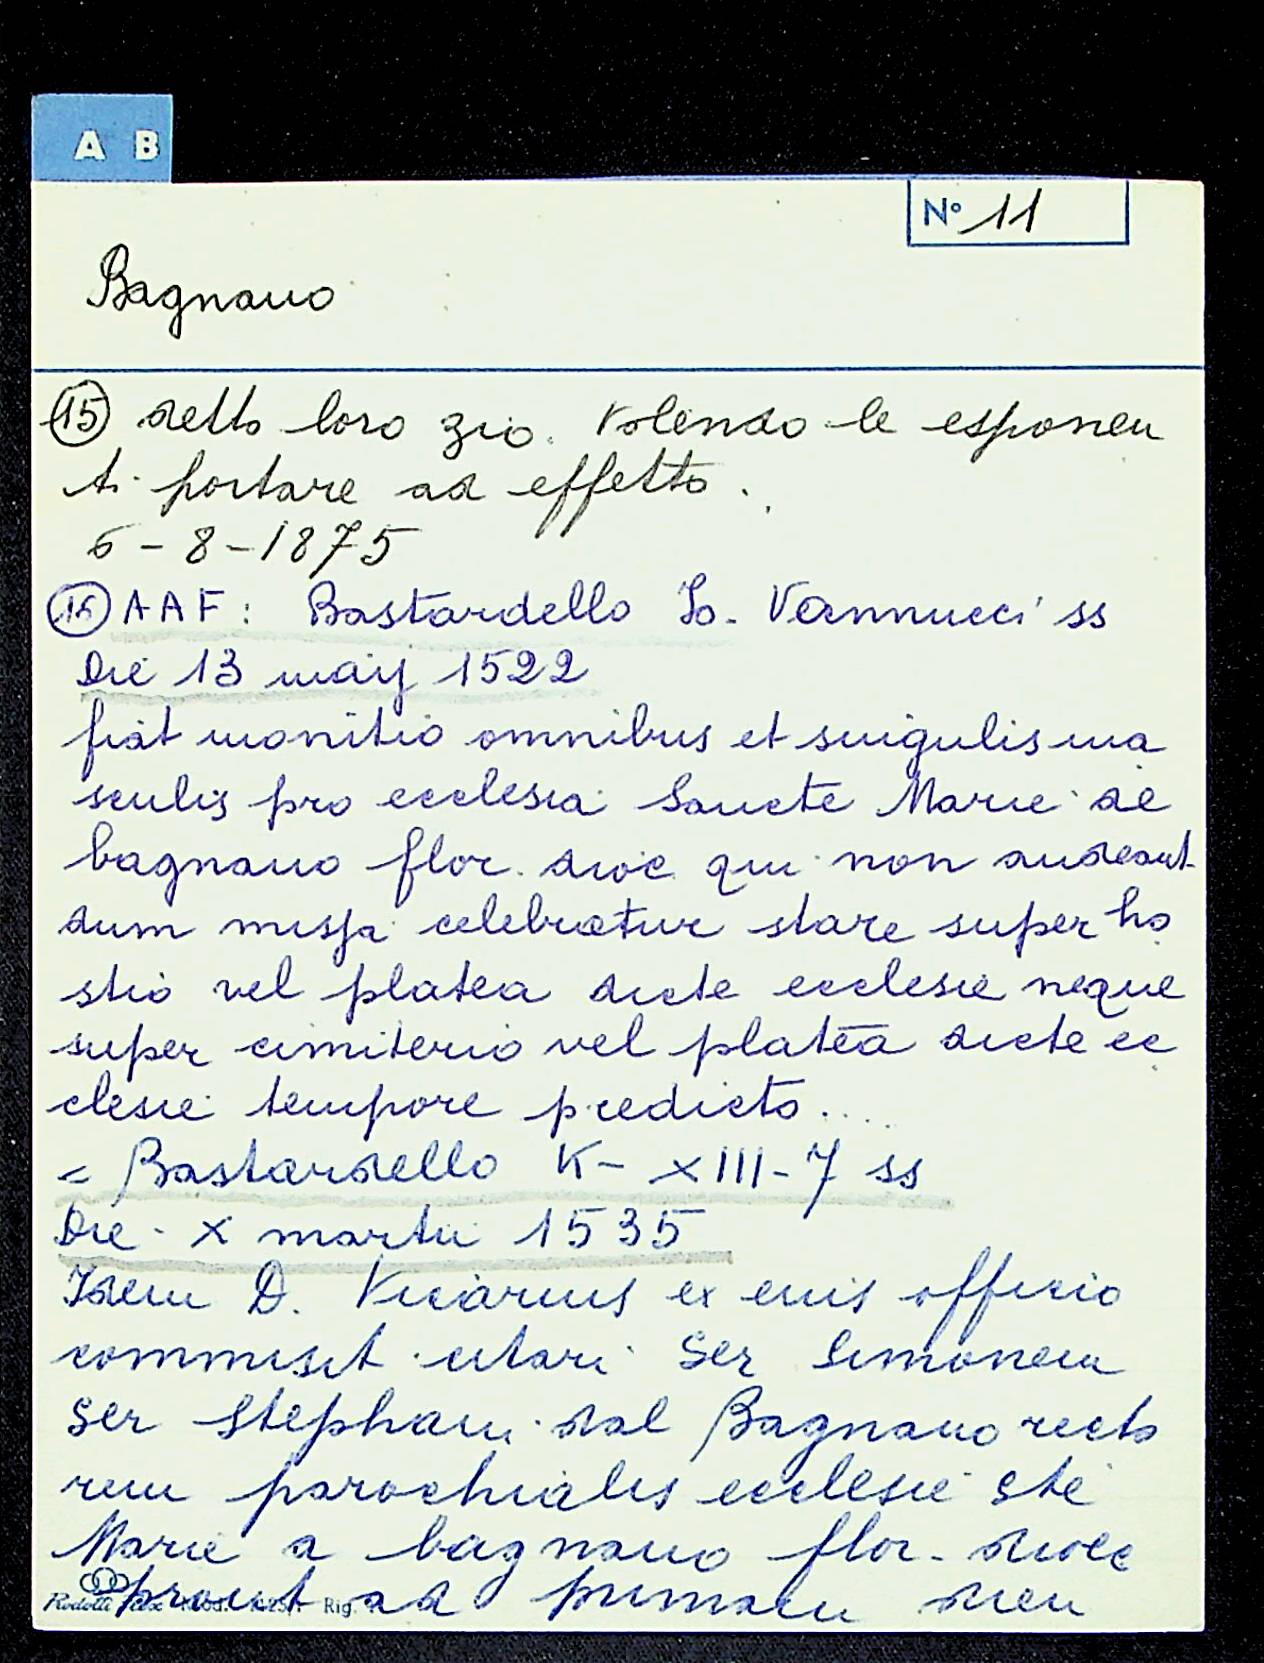 A B
Nº 11
Bagnano
15 detto loro zio. Volendo le esponen
ti portare ad effetto.
6-8-1875
16 AAF: Bastardello Io. Vannucci ss
Die 13 maij 1522
fiat monitio omnibus et singulis ma
sculis pro ecclesia Sancte Marie de
bagnano flor. dioc. qui non audeant
dum missa celebratur stare super ho
stio vel platea dicte ecclesie neque
super cimiterio vel platea dicte ec
clesie tempore predicto...
= Bastardello K- XIII-7 ss
Die X martii 1535
Idem D. Vicarius ex eius officio
commisit citari Ser Simonem
Ser Stephani dal Bagnano recto
rem parochialis ecclesie Ste
Marie a bagnano flor. dioce
prout ad primam diem
Rig.